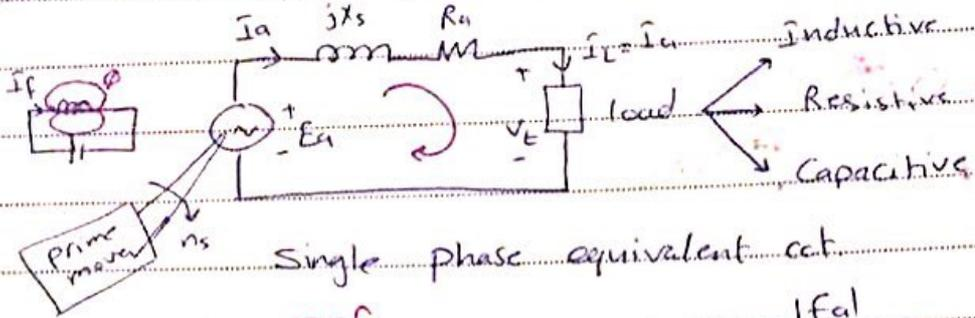 Ia jXs Ra IL = Ia Inductive
If Φ
+ Ea - + Vt - load Resistive
Capacitive
prime mover ns
Single phase equivalent cct.
|Ea|